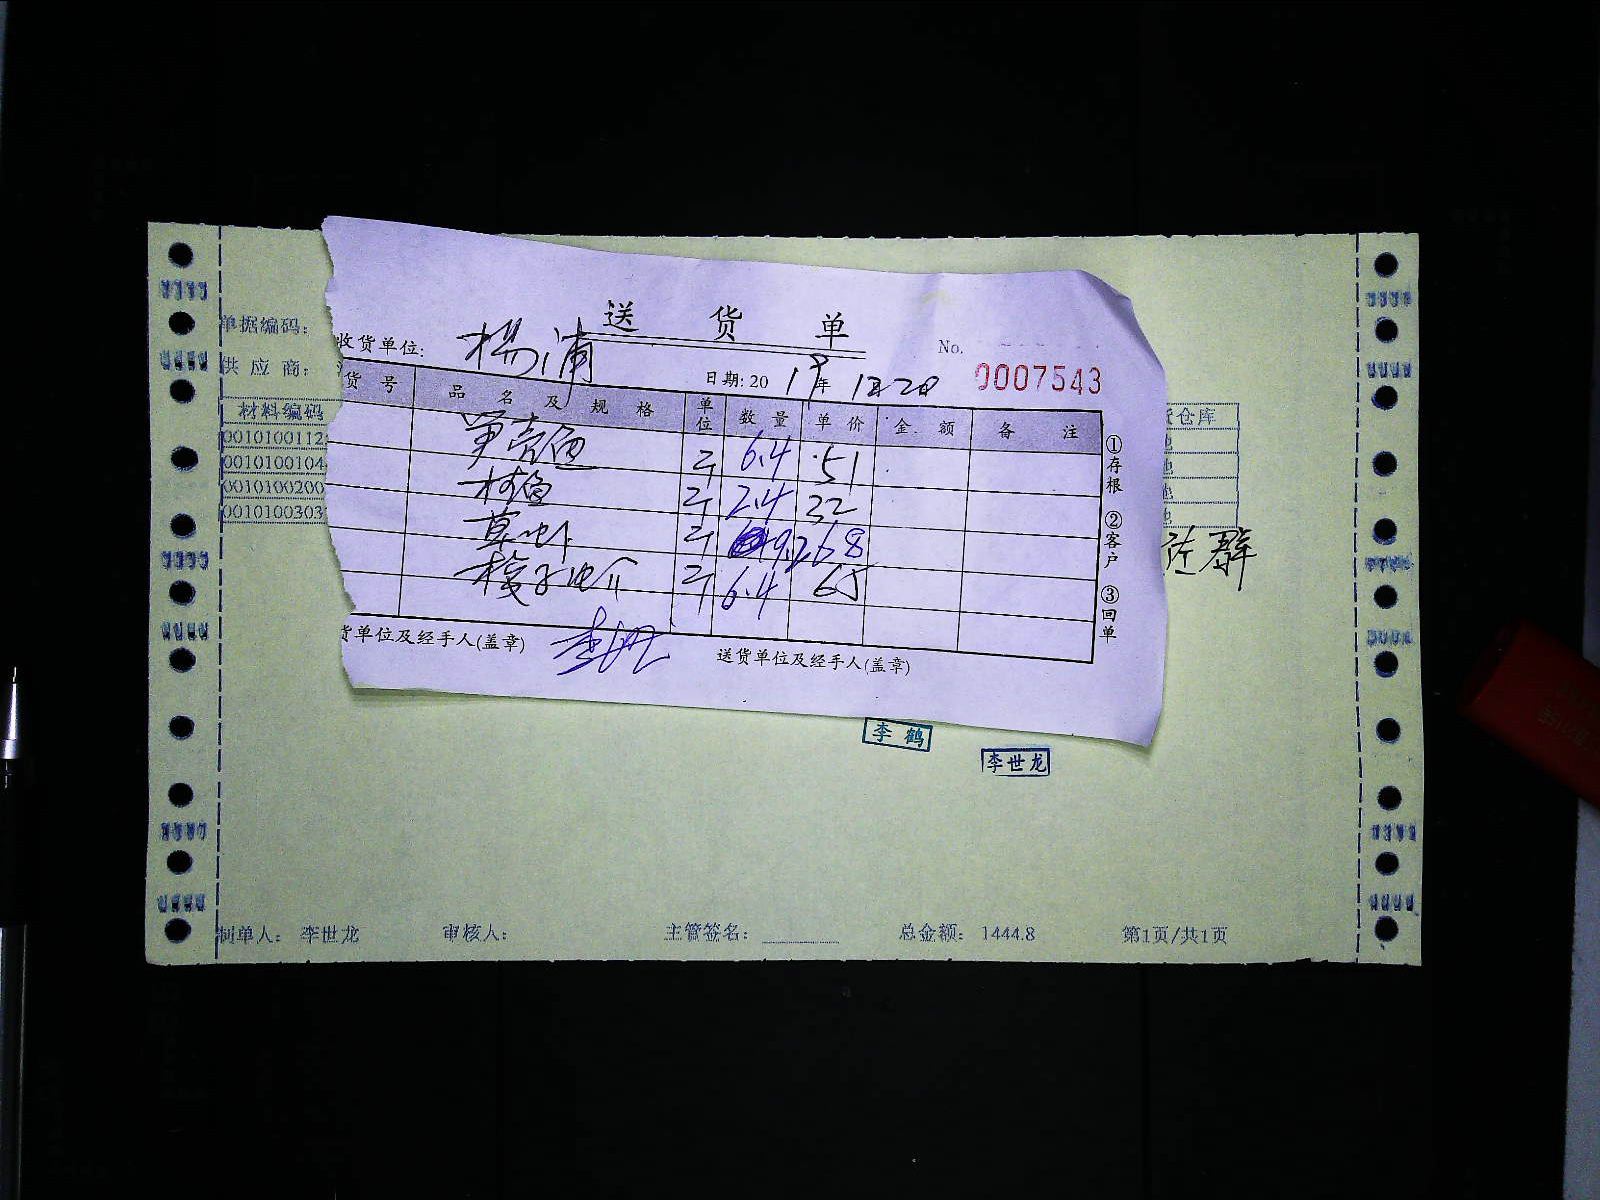 送货单
No. 0007543
收货单位: 杨浦
日期: 2019年12月20
单据编码:
供应商:
材料编码
0010100112
0010100104
0010100200
0010100303
货号 品名及规格 单位 数量 单价 金额 备注
笋壳鱼 斤 6.4 51
村鱼 斤 2.4 32
草虾 斤 9.2 68
梭子蟹 斤 6.4 65
①存根 ②客户 ③回单
仓库
货单位及经手人(盖章)
送货单位及经手人(盖章)
李鹤
李世龙
制单人: 李世龙 审核人: 主管签名: 总金额: 1444.8 第1页/共1页